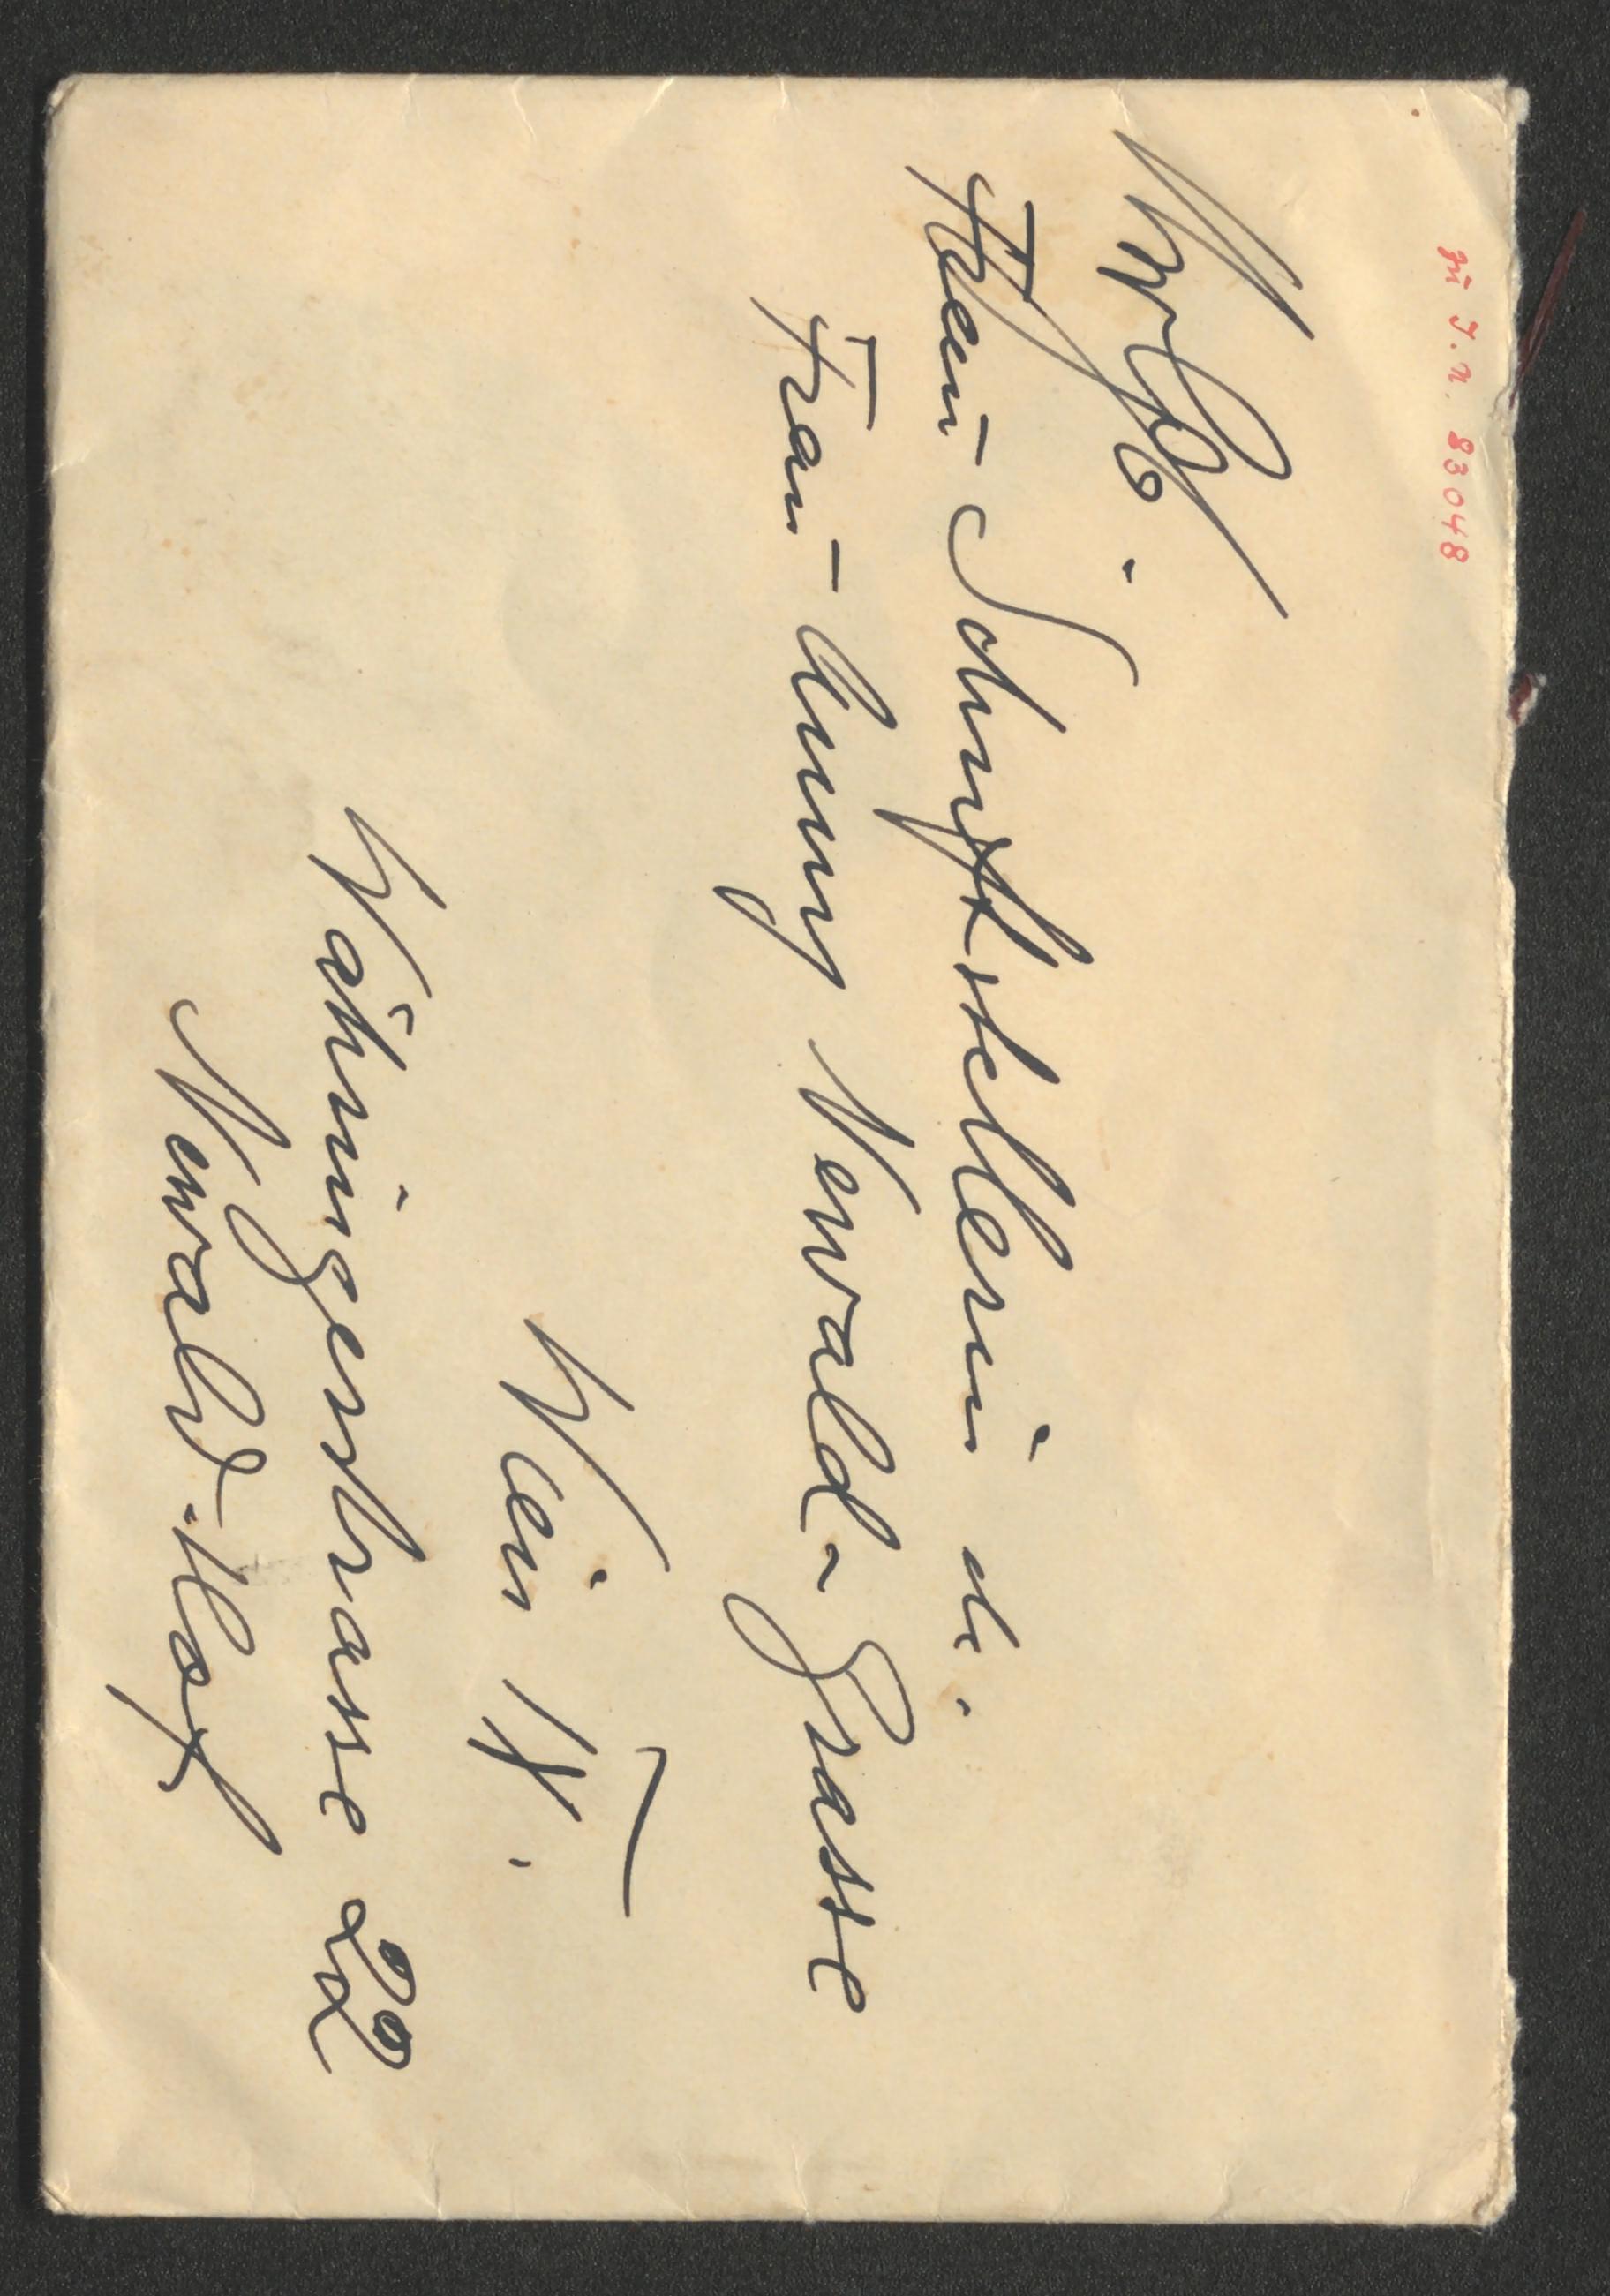 zu J.N. 83048
Wolg.
Frau Schriftstellerin de.
Frau Anny Newald-Grasse
Wien 18.
Währingerstrasse 22
Newald-Hof